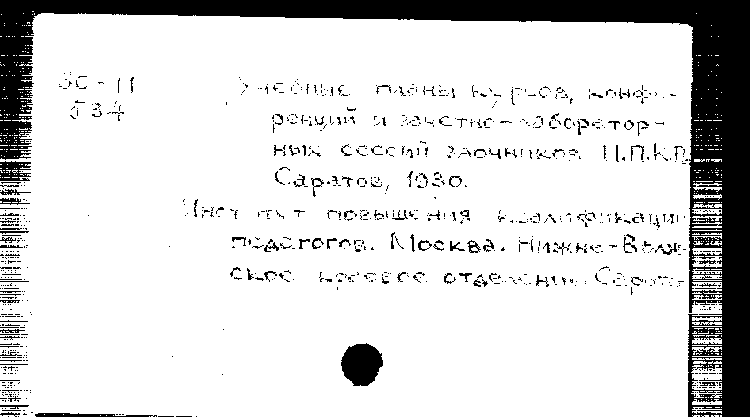 36-11
534
Учебные планы курсов, конфе-
ренций и зачетно-лаборатор-
ных сессий заочников И.П.К.П.
Саратов, 1930.
Институт повышения квалификации
педагогов. Москва. Нижне-Волж-
ское краевое отделение. Саратов